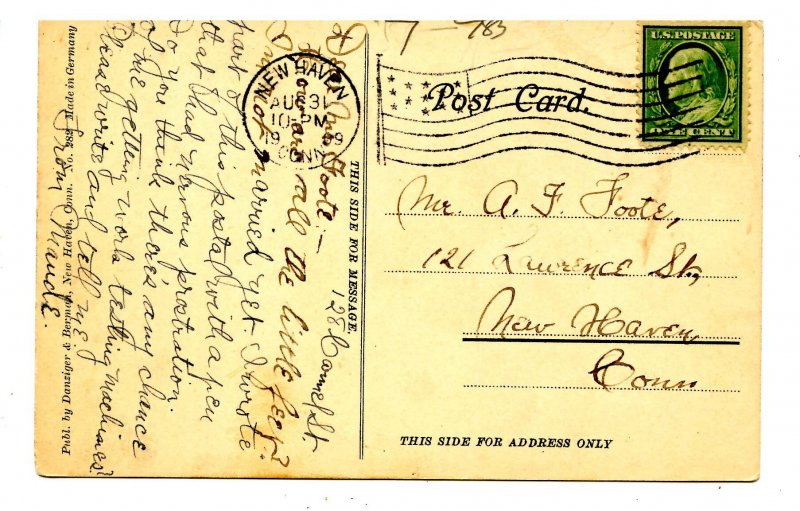 128 Carmel St.
Dear Mr. Foote:—
How are all the little feet?
I'm not married yet. I wrote
part of this postal with a pen
that had nervous prostration.
Do you think there's any chance
of me getting work testing machines?
Please write and tell me
From Maude.
THIS SIDE FOR MESSAGE.
Publ. by Danziger & Berman, New Haven, Conn. No. 282. Made in Germany
7 - 783
NEW HAVEN
AUG 31
10-PM
1909
CONN.
U.S. POSTAGE
ONE CENT
Post Card.
Mr. A. F. Foote,
121 Lawrence St.,
New Haven,
Conn
THIS SIDE FOR ADDRESS ONLY